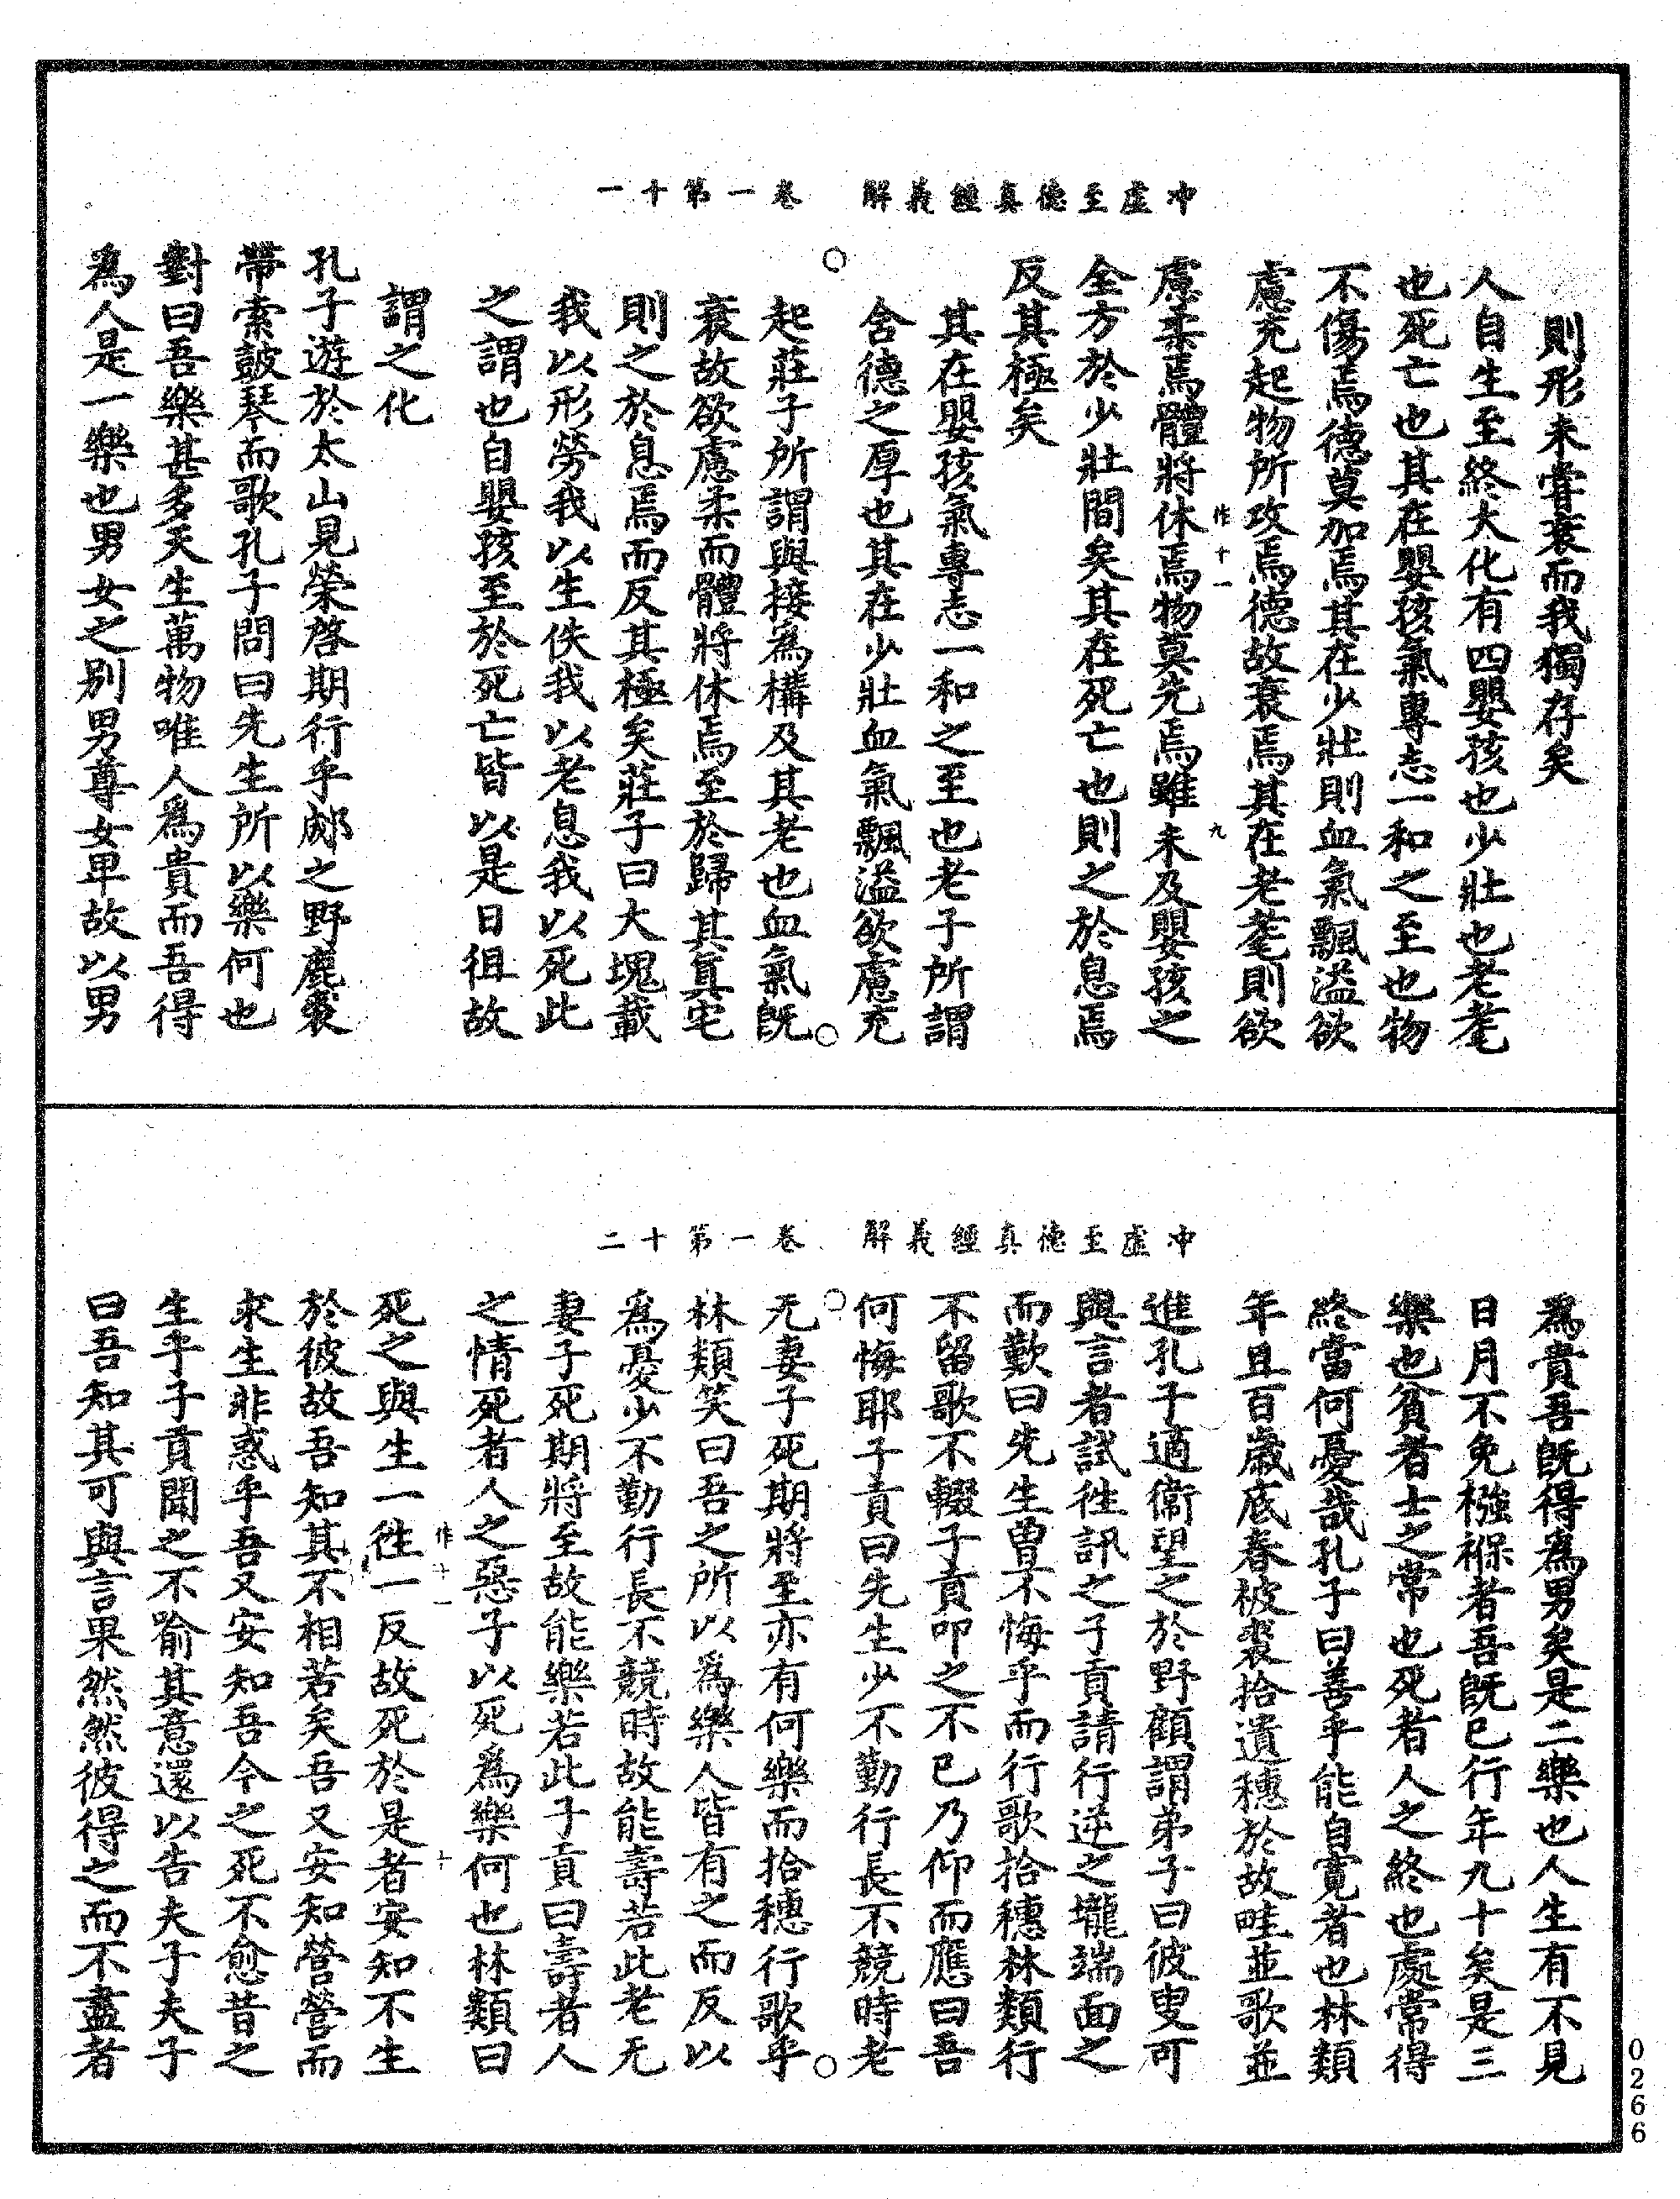 冲虛至德真經義解　卷一第十一
則形未嘗衰而我獨存矣
人自生至終大化有四嬰孩也少壯也老耄
也死亡也其在嬰孩氣專志一和之至也物
不傷焉德莫加焉其在少壯則血氣飄溢欲
慮充起物所攻焉德故衰焉其在老耄則欲
作十一　九
慮柔焉體將休焉物莫先焉雖未及嬰孩之
全方於少壯間矣其在死亡也則之於息焉
反其極矣
其在嬰孩氣專志一和之至也老子所謂
含德之厚也其在少壯血氣飄溢欲慮充
起莊子所謂與接為構及其老也血氣既
衰故欲慮柔而體將休焉至於歸其真宅
則之於息焉而反其極矣莊子曰大塊載
我以形勞我以生佚我以老息我以死此
之謂也自嬰孩至於死亡皆以是日徂故
謂之化
孔子遊於太山見榮啓期行乎郕之野鹿裘
帶索鼓琴而歌孔子問曰先生所以樂何也
對曰吾樂甚多天生萬物唯人為貴而吾得
為人是一樂也男女之別男尊女卑故以男
冲虛至德真經義解　卷一第十二
為貴吾既得為男矣是二樂也人生有不見
日月不免襁褓者吾既已行年九十矣是三
樂也貧者士之常也死者人之終也處常得
終當何憂哉孔子曰善乎能自寬者也林類
年且百歲底春披裘拾遺穗於故畦並歌並
進孔子適衛望之於野顧謂弟子曰彼叟可
與言者試往訊之子貢請行逆之壠端面之
而歎曰先生曾不悔乎而行歌拾穗林類行
不留歌不輟子貢叩之不已乃仰而應曰吾
何悔耶子貢曰先生少不勤行長不競時老
无妻子死期將至亦有何樂而拾穗行歌乎
林類笑曰吾之所以為樂人皆有之而反以
為憂少不勤行長不競時故能壽若此老无
妻子死期將至故能樂若此子貢曰壽者人
之情死者人之惡子以死為樂何也林類曰
作十一　十
死之與生一往一反故死於是者安知不生
於彼故吾知其不相若矣吾又安知營營而
求生非惑乎吾又安知吾今之死不愈昔之
生乎子貢聞之不喻其意還以告夫子夫子
曰吾知其可與言果然然彼得之而不盡者
0266